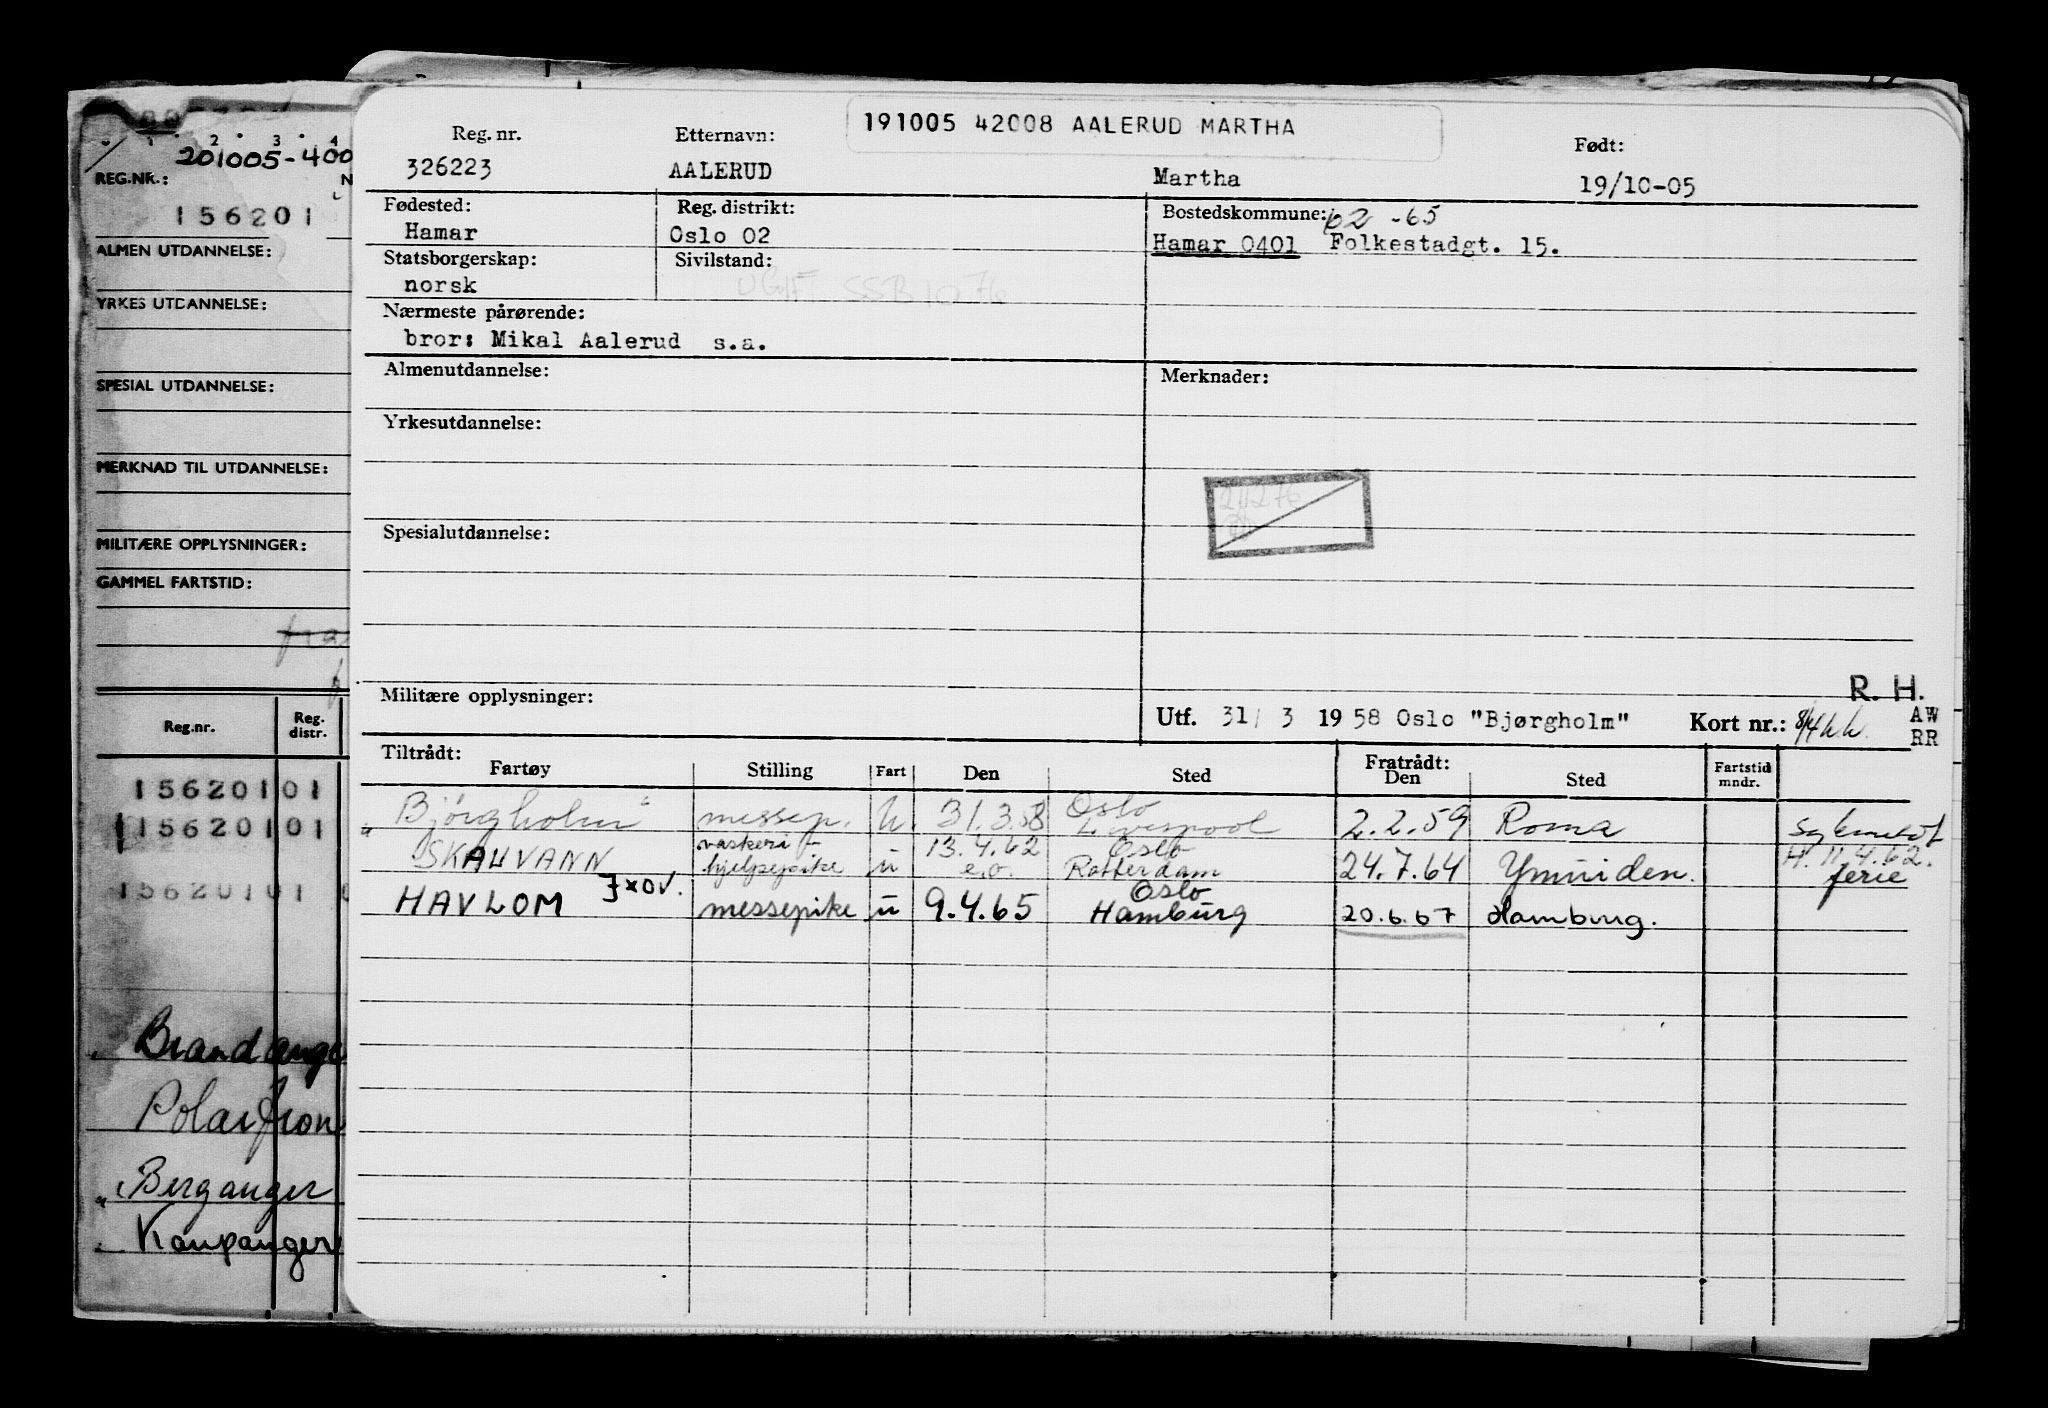 1 2 3 4
201005-400
REG.NR.:
156201
ALMEN UTDANNELSE:
YRKES UTDANNELSE:
SPESIAL UTDANNELSE:
MERKNAD TIL UTDANNELSE:
MILITÆRE OPPLYSNINGER:
GAMMEL FARTSTID:
Reg.nr. Reg. distr.
156201 01
156201 01
156201 01
Brandange
Polarfron
Berganger
Kaupanger
191005 42008 AALERUD MARTHA
Reg. nr. Etternavn: Født:
326223 AALERUD Martha 19/10-05
Fødested: Reg. distrikt: Bostedskommune: 62 -65
Hamar Oslo 02 Hamar 0401 Folkestadgt. 15.
Statsborgerskap: Sivilstand:
norsk UGIFT SSB 10 76
Nærmeste pårørende:
bror: Mikal Aalerud s.a.
Almenutdannelse: Merknader:
Yrkesutdannelse:
Spesialutdannelse:
R. H.
Militære opplysninger: Utf. 31/ 3 1958 Oslo "Bjørgholm" Kort nr.: AW
RR
Tiltrådt: Fratrådt:
Fartøy Stilling Fart Den Sted Den Sted Fartstid mndr.
Oslo
"Bjørgholm" messep. u. 31.3.58 Liverpool 2.2.59 Roma
vaskeri- 13.4.62 Oslo H. 11.4.62.
SKAUVANN hjelpepike u e.o. Rotterdam 24.7.64 Ymuiden. ferie
JXOV. Oslo
HAVLOM messepike u 9.4.65 Hamburg 20.6.67 Hamburg.